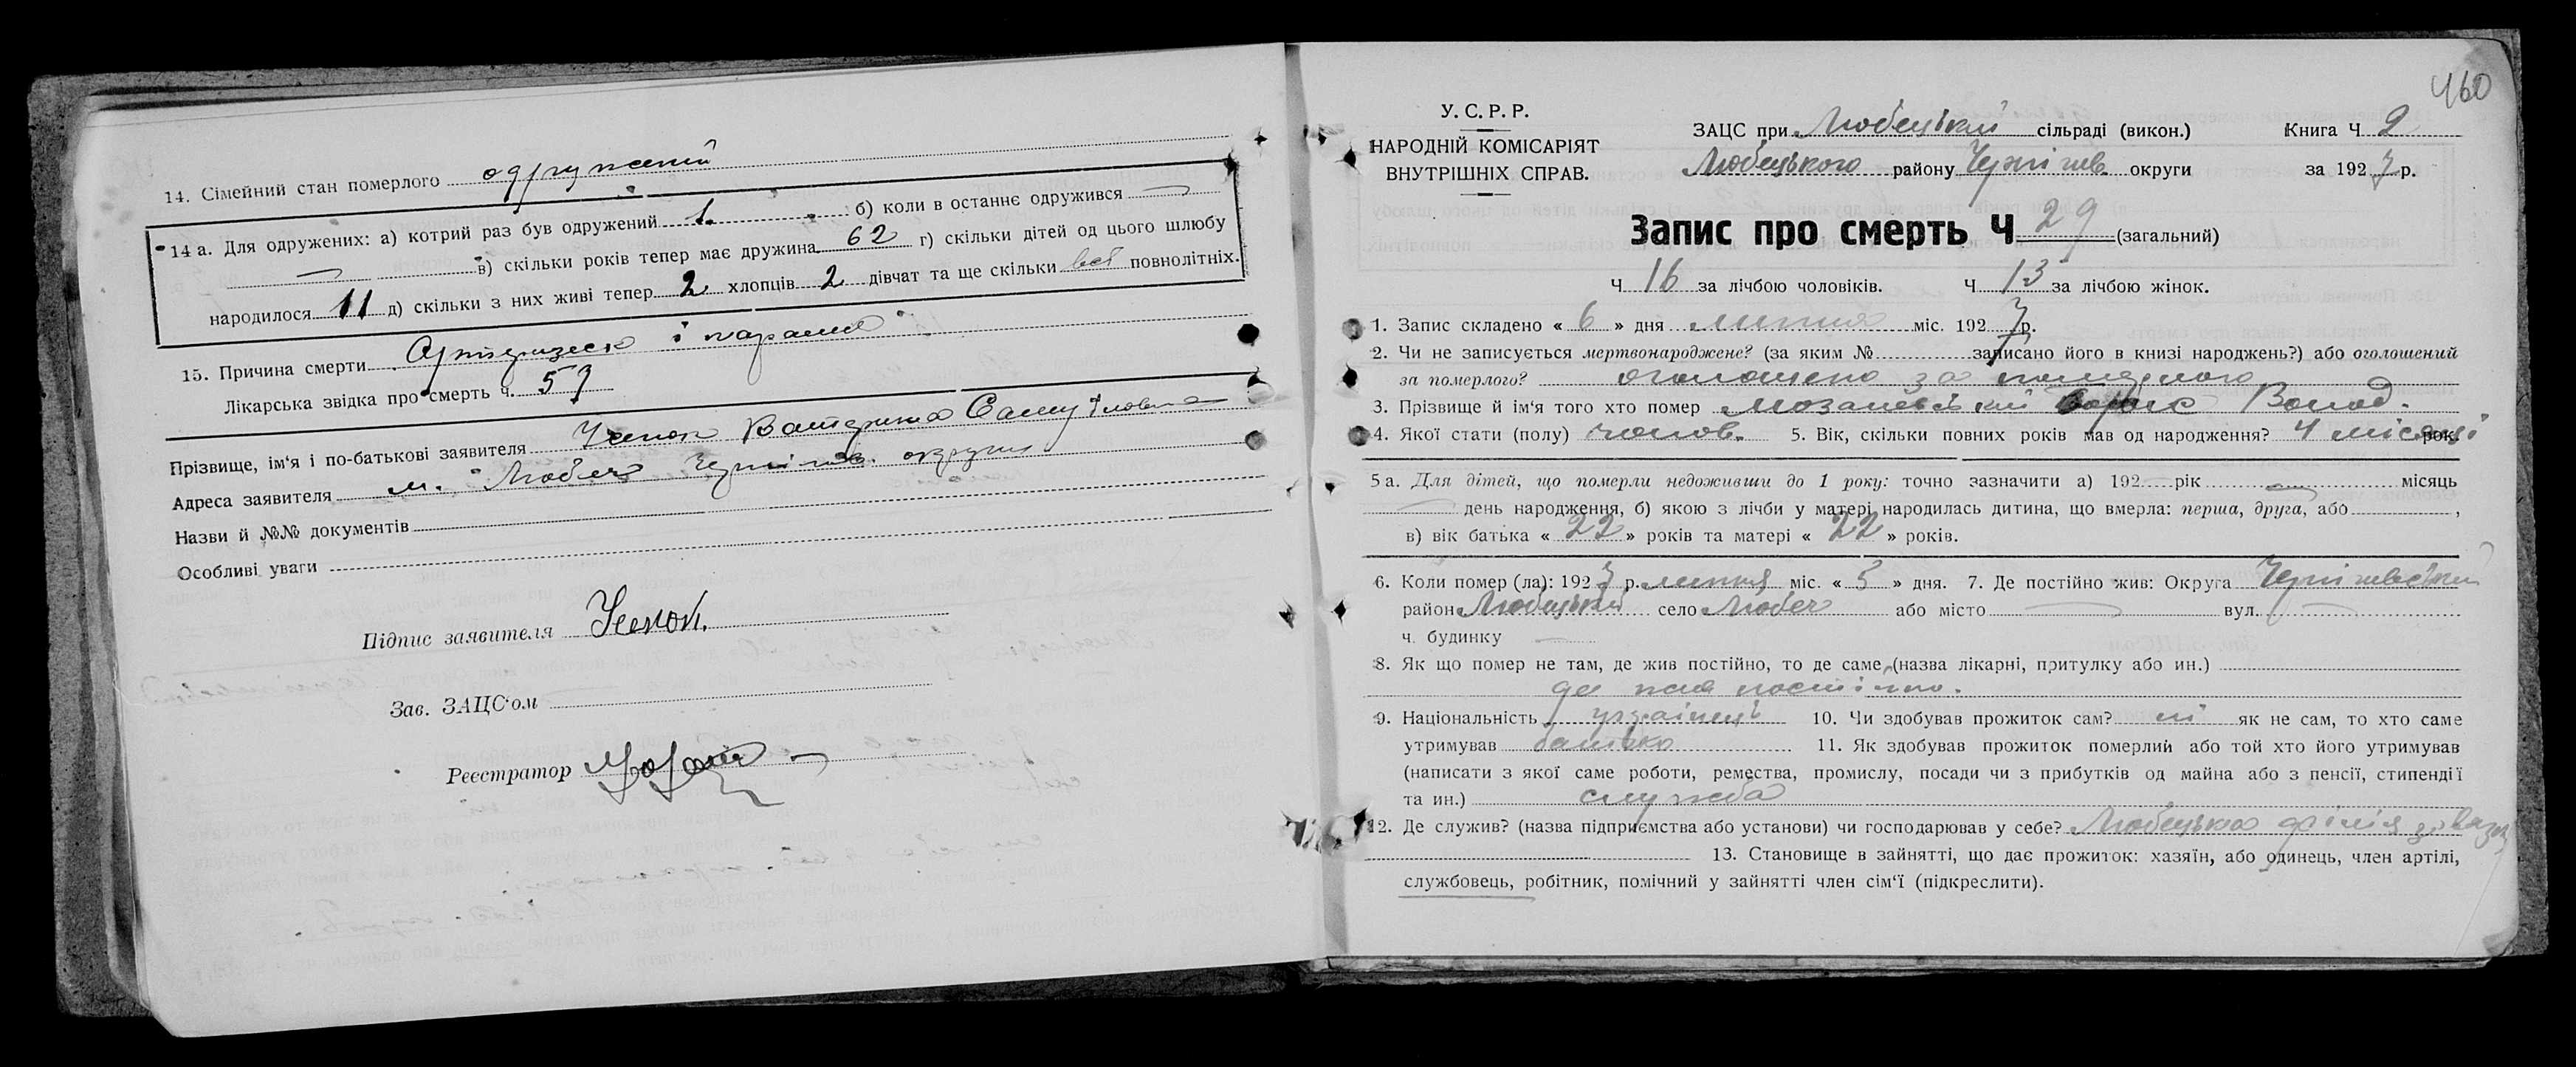 14. Сімейний стан померлого одружений
14 а. Для одружених: а) котрий раз був одружений 1. б) коли в останнє одружився —
— в) скільки років тепер має дружина 62 г) скільки дітей од цього шлюбу
народилося 11 д) скільки з них живі тепер 2 хлопців 2 дівчат та ще скільки всі повнолітніх.
15. Причина смерти і
Лікарська звідка про смерть ч. 59
Прізвище, ім'я і по-батькові заявителя
Адреса заявителя м. Любеч Чернігів. округи
Назви й №№ документів
Особливі уваги
Підпис заявителя
Зав. ЗАЦС'ом
Реєстратор
460
У. С. Р. Р.
НАРОДНІЙ КОМІСАРІЯТ
ВНУТРІШНІХ СПРАВ.
ЗАЦС при Любецький сільраді (викон.) Книга Ч 2
Любецького району Чернігів. округи за 1927 р.
Запис про смерть Ч 29 (загальний)
Ч 16 за лічбою чоловіків. Ч 13 за лічбою жінок.
1. Запис складено « 6 » дня липня міс. 1927 р.
2. Чи не записується мертвонароджене? (за яким № записано його в книзі народжень?) або оголошений
за померлого? оголошено за померлого
3. Прізвище й ім'я того хто помер Борис Волод.
4. Якої стати (полу) чолов. 5. Вік, скільки повних років мав од народження? 4 місяці рок.
5 а. Для дітей, що померли недоживши до 1 року: точно зазначити а) 192 — рік — місяць
— день народження, б) якою з лічби у матері народилась дитина, що вмерла: перша, друга, або ,
в) вік батька « 22 » років та матері « 22 » років.
6. Коли помер (ла): 1927 р. липня міс. « 5 » дня. 7. Де постійно жив: Округа Чернігівський
район Любецький село Любеч або місто — вул. —
ч. будинку —
8. Як що помер не там, де жив постійно, то де саме (назва лікарні, притулку або ин.)
де жив постійно.
9. Національність українець 10. Чи здобував прожиток сам? ні як не сам, то хто саме
утримував батько 11. Як здобував прожиток померлий або той хто його утримував
(написати з якої саме роботи, ремества, промислу, посади чи з прибутків од майна або з пенсії, стипендії
та ин.) служба
12. Де служив? (назва підприємства або установи) чи господарював у себе? Любецька філія
13. Становище в зайнятті, що дає прожиток: хазяїн, або одинець, член артілі,
службовець, робітник, помічний у зайнятті член сім'ї (підкреслити).